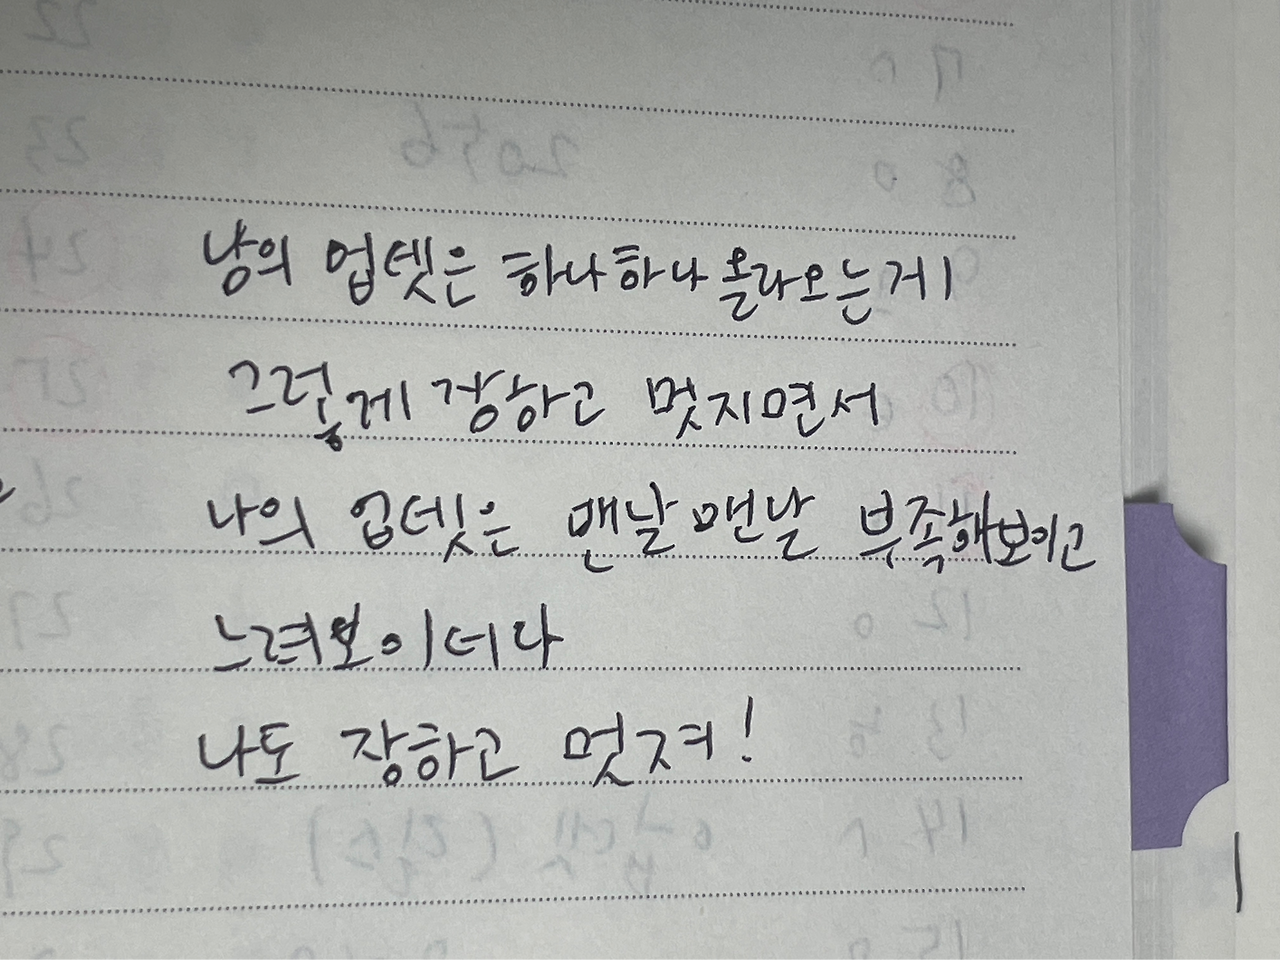 낭의 업뎃은 하나하나 올라오는게
그렇게 장하고 멋지면서
나의 업뎃은 맨날맨날 부족해보이고
느려보이더라
나도 장하고 멋져!